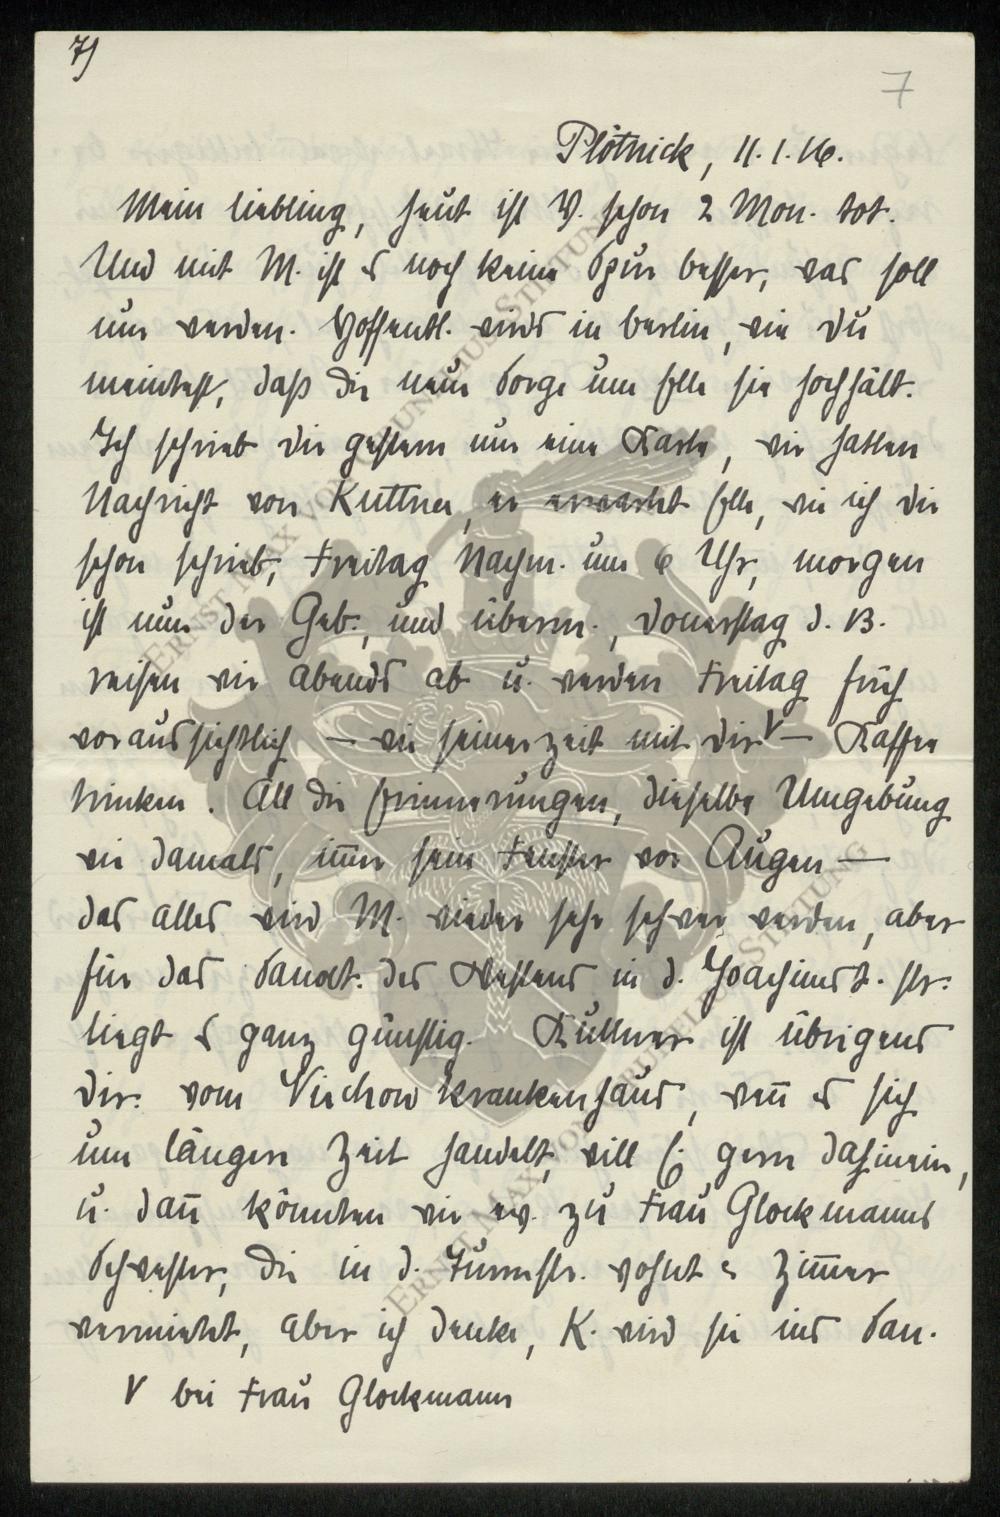 7)
7
Plötnick, 11. 1. 16.
Mein Liebling, heut ist V. schon 2 Mon. tot.
Und mit M. ist es noch keine Spur besser, was soll
nur werden. Hoffentl. wirds in Berlin, wie Du
meintest, daß die neue Sorge um Elle sie hochhält.
Ich schrieb Dir gestern nur eine Karte, wir hatten
Nachricht von Kuttner, er erwartet Elle, wie ich Dir
schon schrieb, Freitag Nachm. um 6 Uhr, morgen
ist nun der Geb., und überm., Donnerstag d. 13.
reisen wir abends ab u. werden Freitag früh
voraussichtlich – wie seinerzeit mit Dir V – Kaffee
trinken. All die Erinnerungen, dieselbe Umgebung
wie damals, immer sein Fenster vor Augen –
das alles wird M. wieder sehr schwer werden, aber
für das Sanat. des Westens in d. Joachimst. str.
liegt es ganz günstig. Kuttner ist übrigens
Dir. vom Virchow Krankenhaus, wenn es sich
um längere Zeit handelt, will E. gern dahinein,
u. dann könnten wir ev. zu Frau Glockmanns
Schwester, die in d. Turmstr. wohnt u. Zimmer
vermietet, aber ich denke, K. wird sie ins San.
V bei Frau Glockmann
ERNST MAX VON GRUNELIUS-STIFTUNG
ERNST MAX VON GRUNELIUS-STIFTUNG